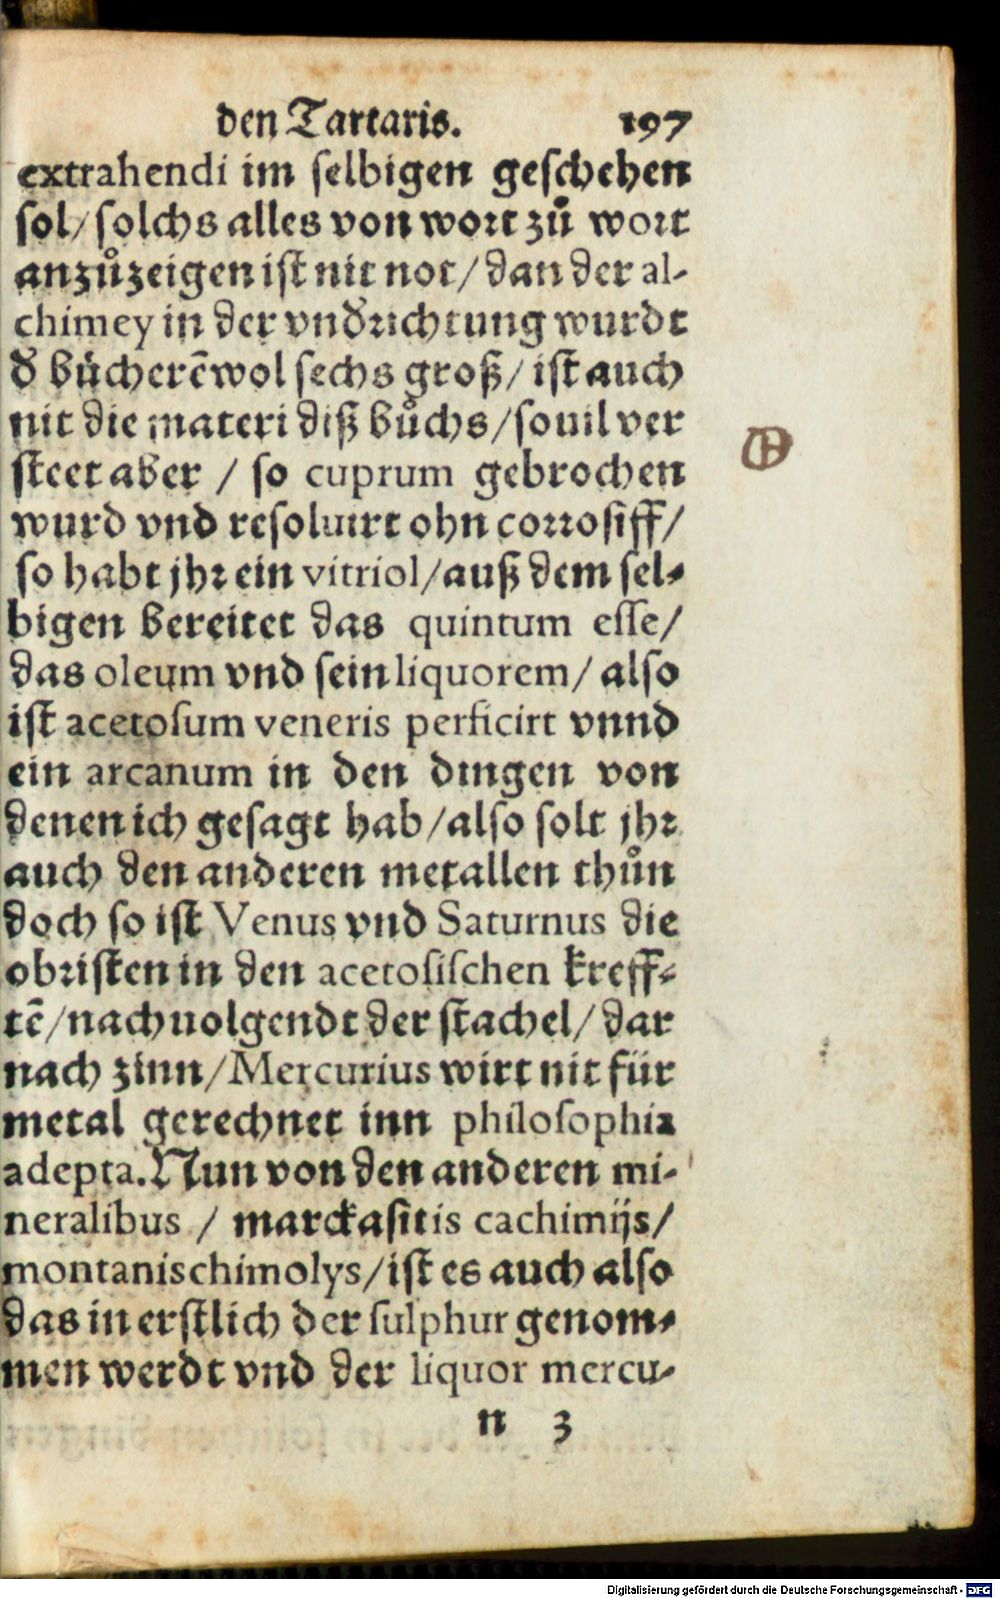 den Tartaris. 197
extrahendi im selbigen geschehen
sol/ solchs alles von wort zů wort
anzůzeigen ist nit not/ dan der al-
chimey in der vnd̕richtung wurdt
d̕ bücherē wol sechs groß/ ist auch
nit die materi diß bůchs/ souil ver
steet aber / so cuprum gebrochen
wurd vnd resoluirt ohn corrosiff/
so habt jhr ein vitriol/ auß dem sel-
bigen bereitet das quintum esse/
das oleum vnd sein liquorem/ also
ist acetosum veneris perficirt vnnd
ein arcanum in den dingen von
denen ich gesagt hab/ also solt jhr
auch den anderen metallen thůn
doch so ist Venus vnd Saturnus die
obristen in den acetosischen kreff-
tē/ nachuolgendt der stachel/ dar
nach zinn/ Mercurius wirt nit für
metal gerechnet inn philosophia
adepta. Nun von den anderen mi-
neralibus / marckasitis cachimijs/
montanischimolys/ ist es auch also
das in erstlich der sulphur genom-
men werdt vnd der liquor mercu-
n 3
Digitalisierung gefördert durch die Deutsche Forschungsgemeinschaft - DFG